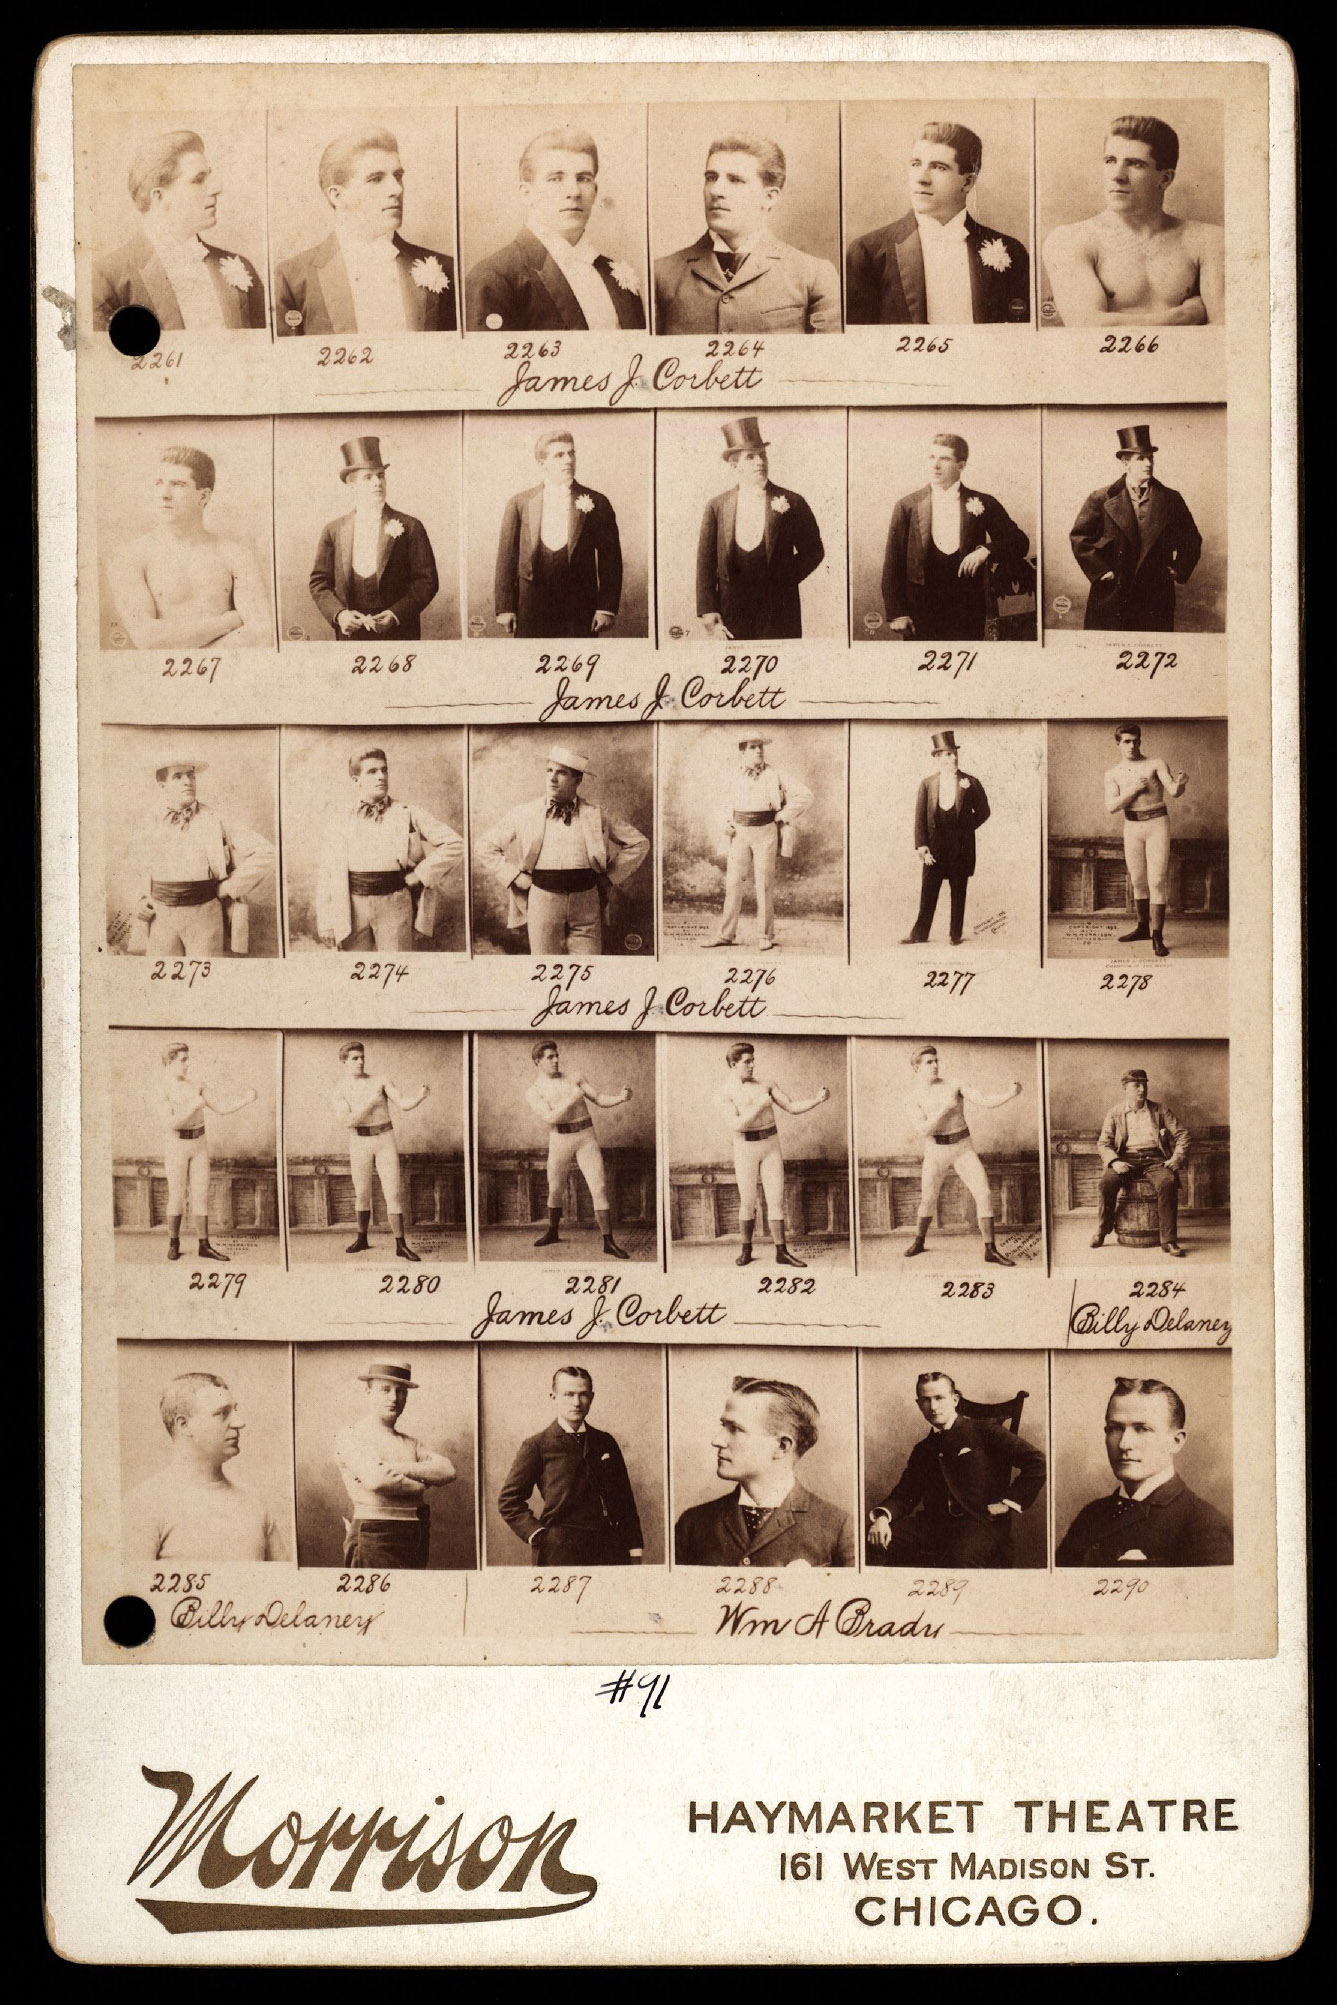 2261 2262 2263 2264 2265 2266
James J. Corbett
2267 2268 2269 2270 2271 2272
James J. Corbett
2273 2274 2275 2276 2277 2278
James J. Corbett
2279 2280 2281 2282 2283 2284
James J. Corbett Billy Delaney
2285 2286 2287 2288 2289 2290
Billy Delaney Wm A Brady
#91
Morrison
HAYMARKET THEATRE
161 WEST MADISON ST.
CHICAGO.